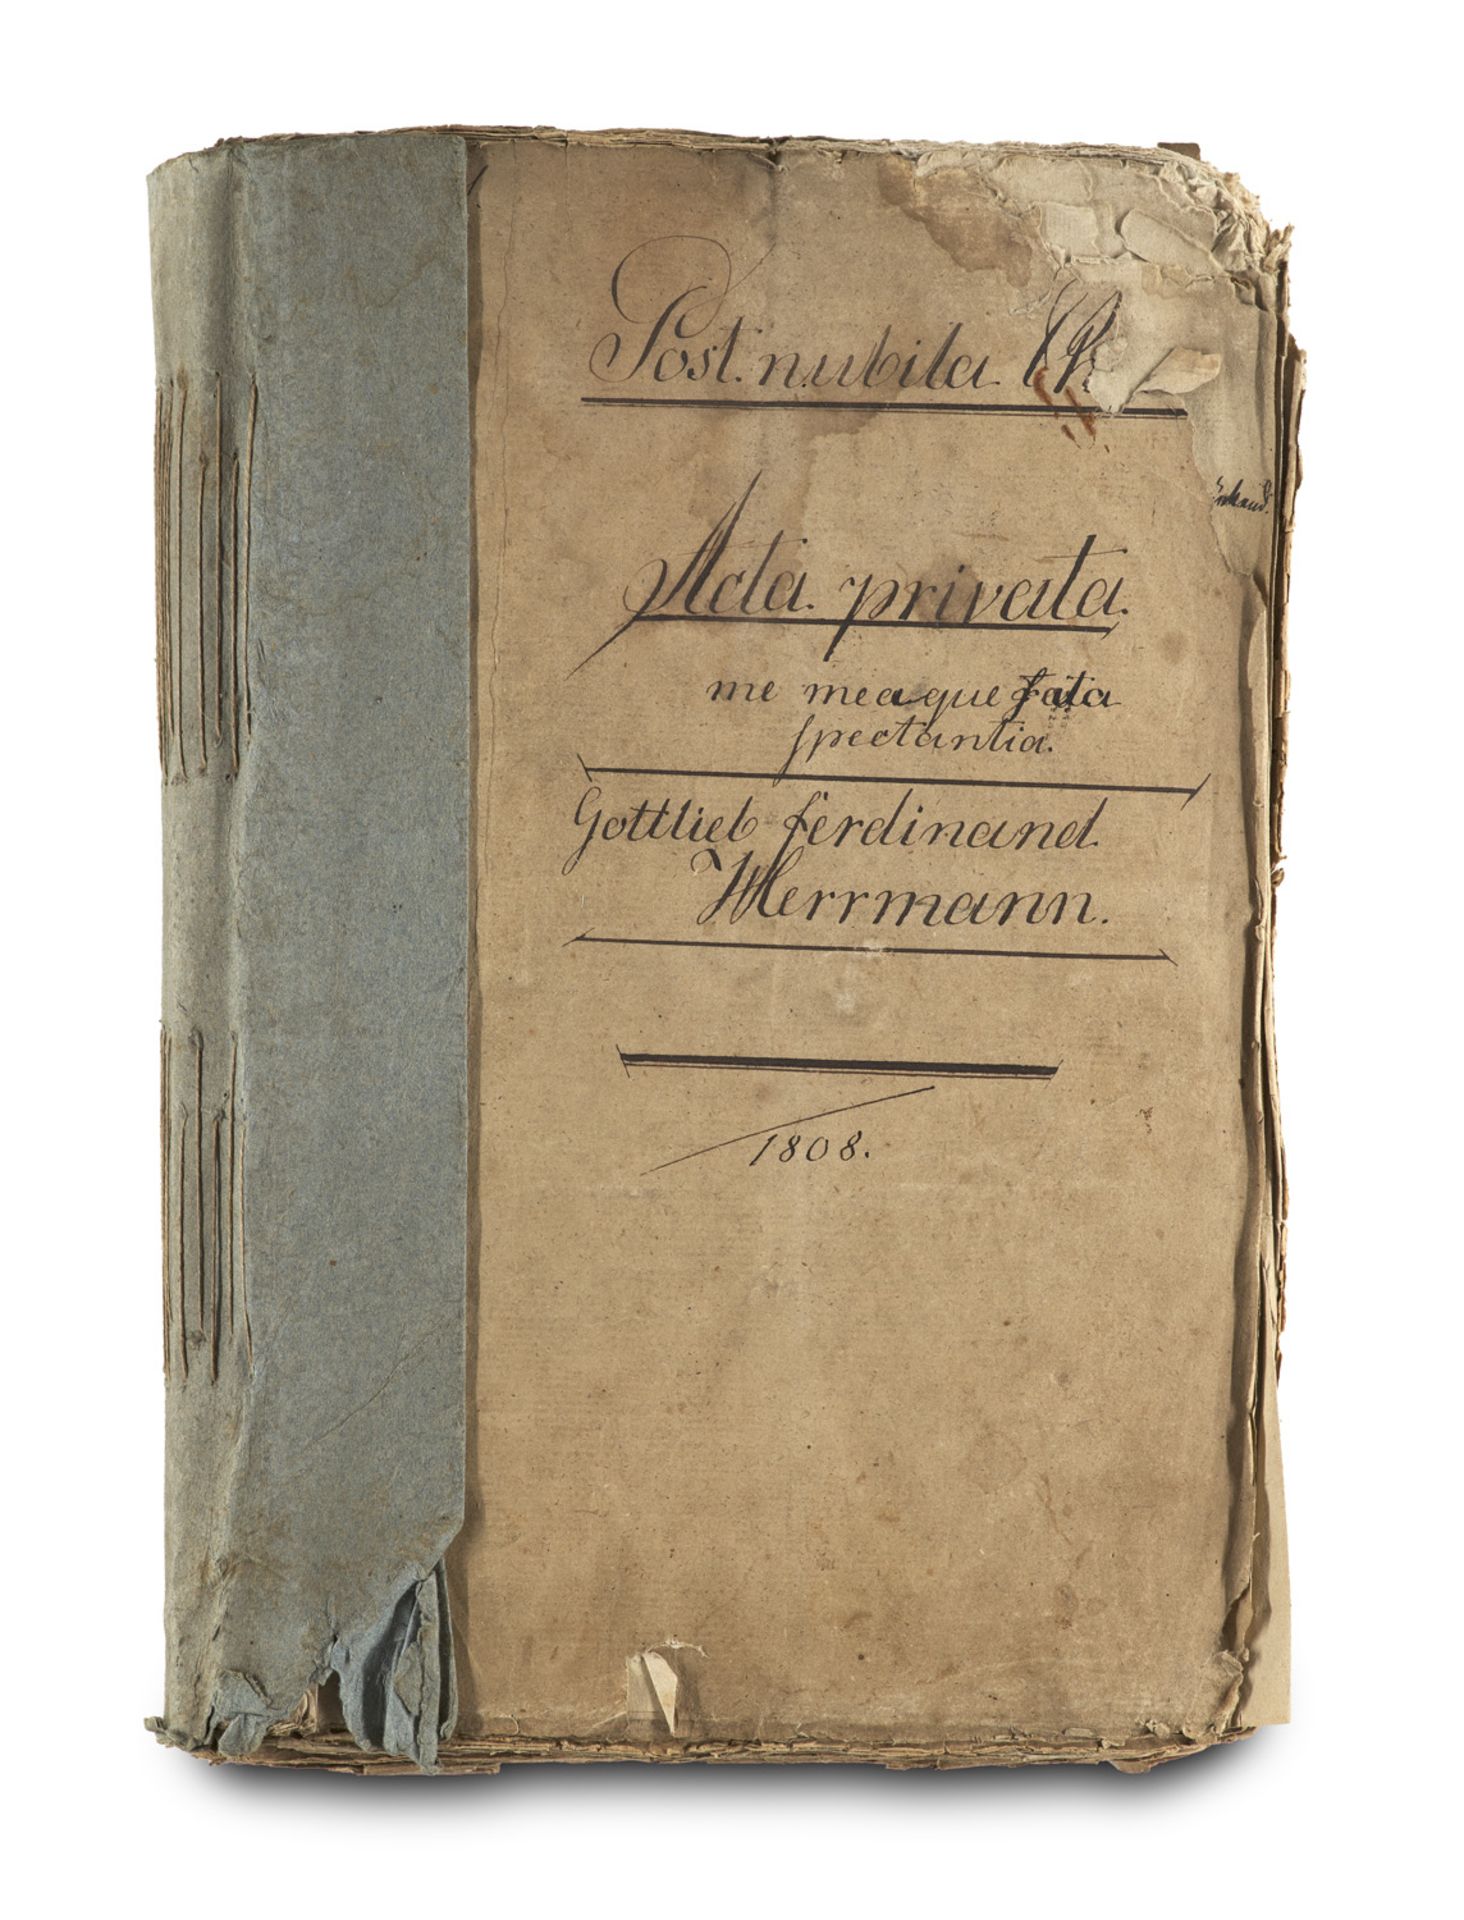 Post. nubila.
Acta. privata.
me meaque fata
spectantia.
Gottlieb ferdinand.
Herrmann.
1808.